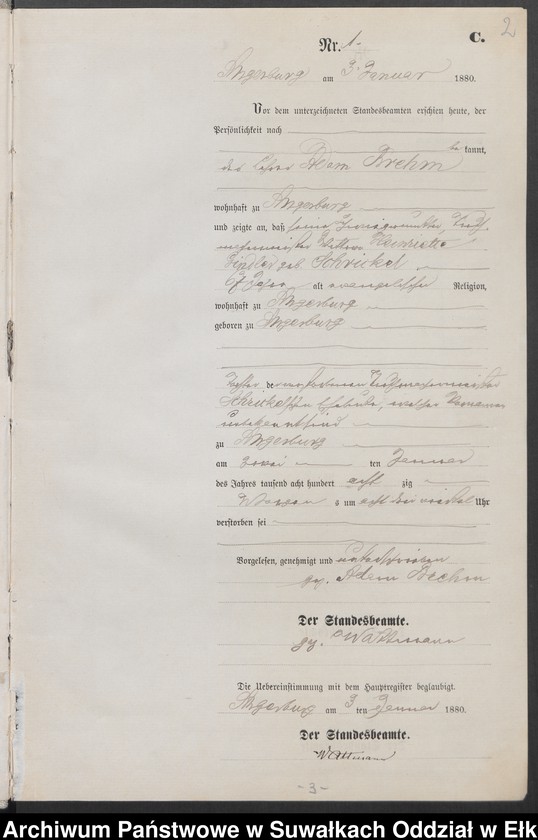 2
C.
Nr. 1.
Angerburg am 3. Januar 1880.
Vor dem unterzeichneten Standesbeamten erschien heute, der
Persönlichkeit nach
be kannt,
der Adam Brehm
wohnhaft zu Angerburg
und zeigte an, daß seine
Wittwe Henriette
geb. Schrickel
alt evangelischer Religion,
wohnhaft zu Angerburg
geboren zu Angerburg
Tochter der verstorbenen
Schrickelschen Eheleute, Vornamen
unbekannt sind
zu Angerburg
am zwei ten Januar
des Jahres tausend acht hundert acht zig
um acht drei viertel Uhr
verstorben sei
Vorgelesen, genehmigt und unterschrieben
gez. Adam Brehm
Der Standesbeamte.
gez. Wattmann
Die Uebereinstimmung mit dem Hauptregister beglaubigt.
Angerburg am 3 ten Januar 1880.
Der Standesbeamte.
Wattmann
-3-
Archiwum Państwowe w Suwałkach Oddział w Ełk